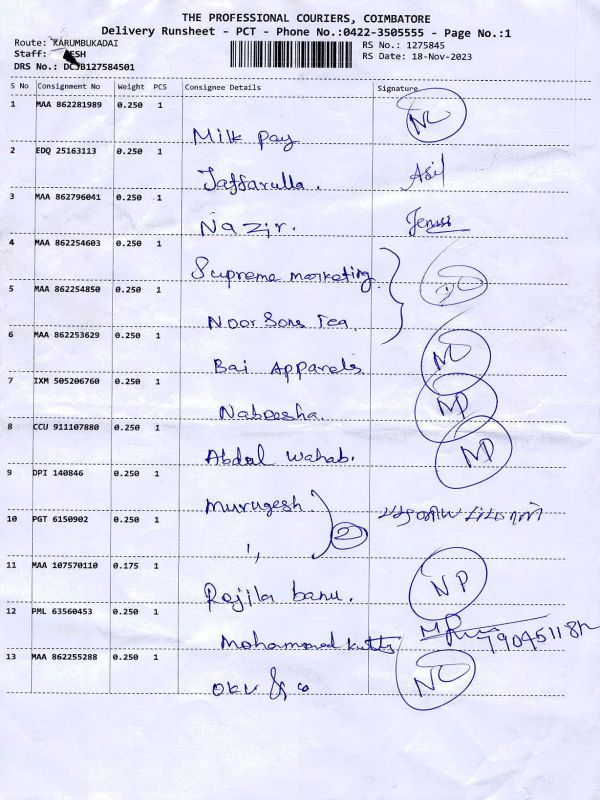 THE PROFESSIONAL COURIERS, COIMBATORE
Delivery Runsheet - PCT - Phone No.:0422-3505555 - Page No.:1
Route: KARUMBUKADAI
RS No.: 1275845
Staff: ESH
RS Date: 18-Nov-2023
DRS No.: DCJB127584501
S No Consignment No Weight PCS Consignee Details Signature
1 MAA 862281989 0.250 1
Milk pay NC
2 EDQ 25163113 0.250 1
Jaffarulla. Asif
3 MAA 862796041 0.250 1
Nazir.
4 MAA 862254603 0.250 1
Supreme marketing
5 MAA 862254850 0.250 1
Noor Sons Tea
6 MAA 862253629 0.250 1
Bai Apparels NC
7 IXM 505206760 0.250 1
Nabeesha. NP
8 CCU 911107880 0.250 1
Abdul wahab. NP
9 DPI 140846 0.250 1
Murugesh 2
10 PGT 6150902 0.250 1
",
11 MAA 107570110 0.175 1
Rajila banu. NP
12 PML 63560453 0.250 1
Mohammed kutty
13 MAA 862255288 0.250 1
OKV & co NC